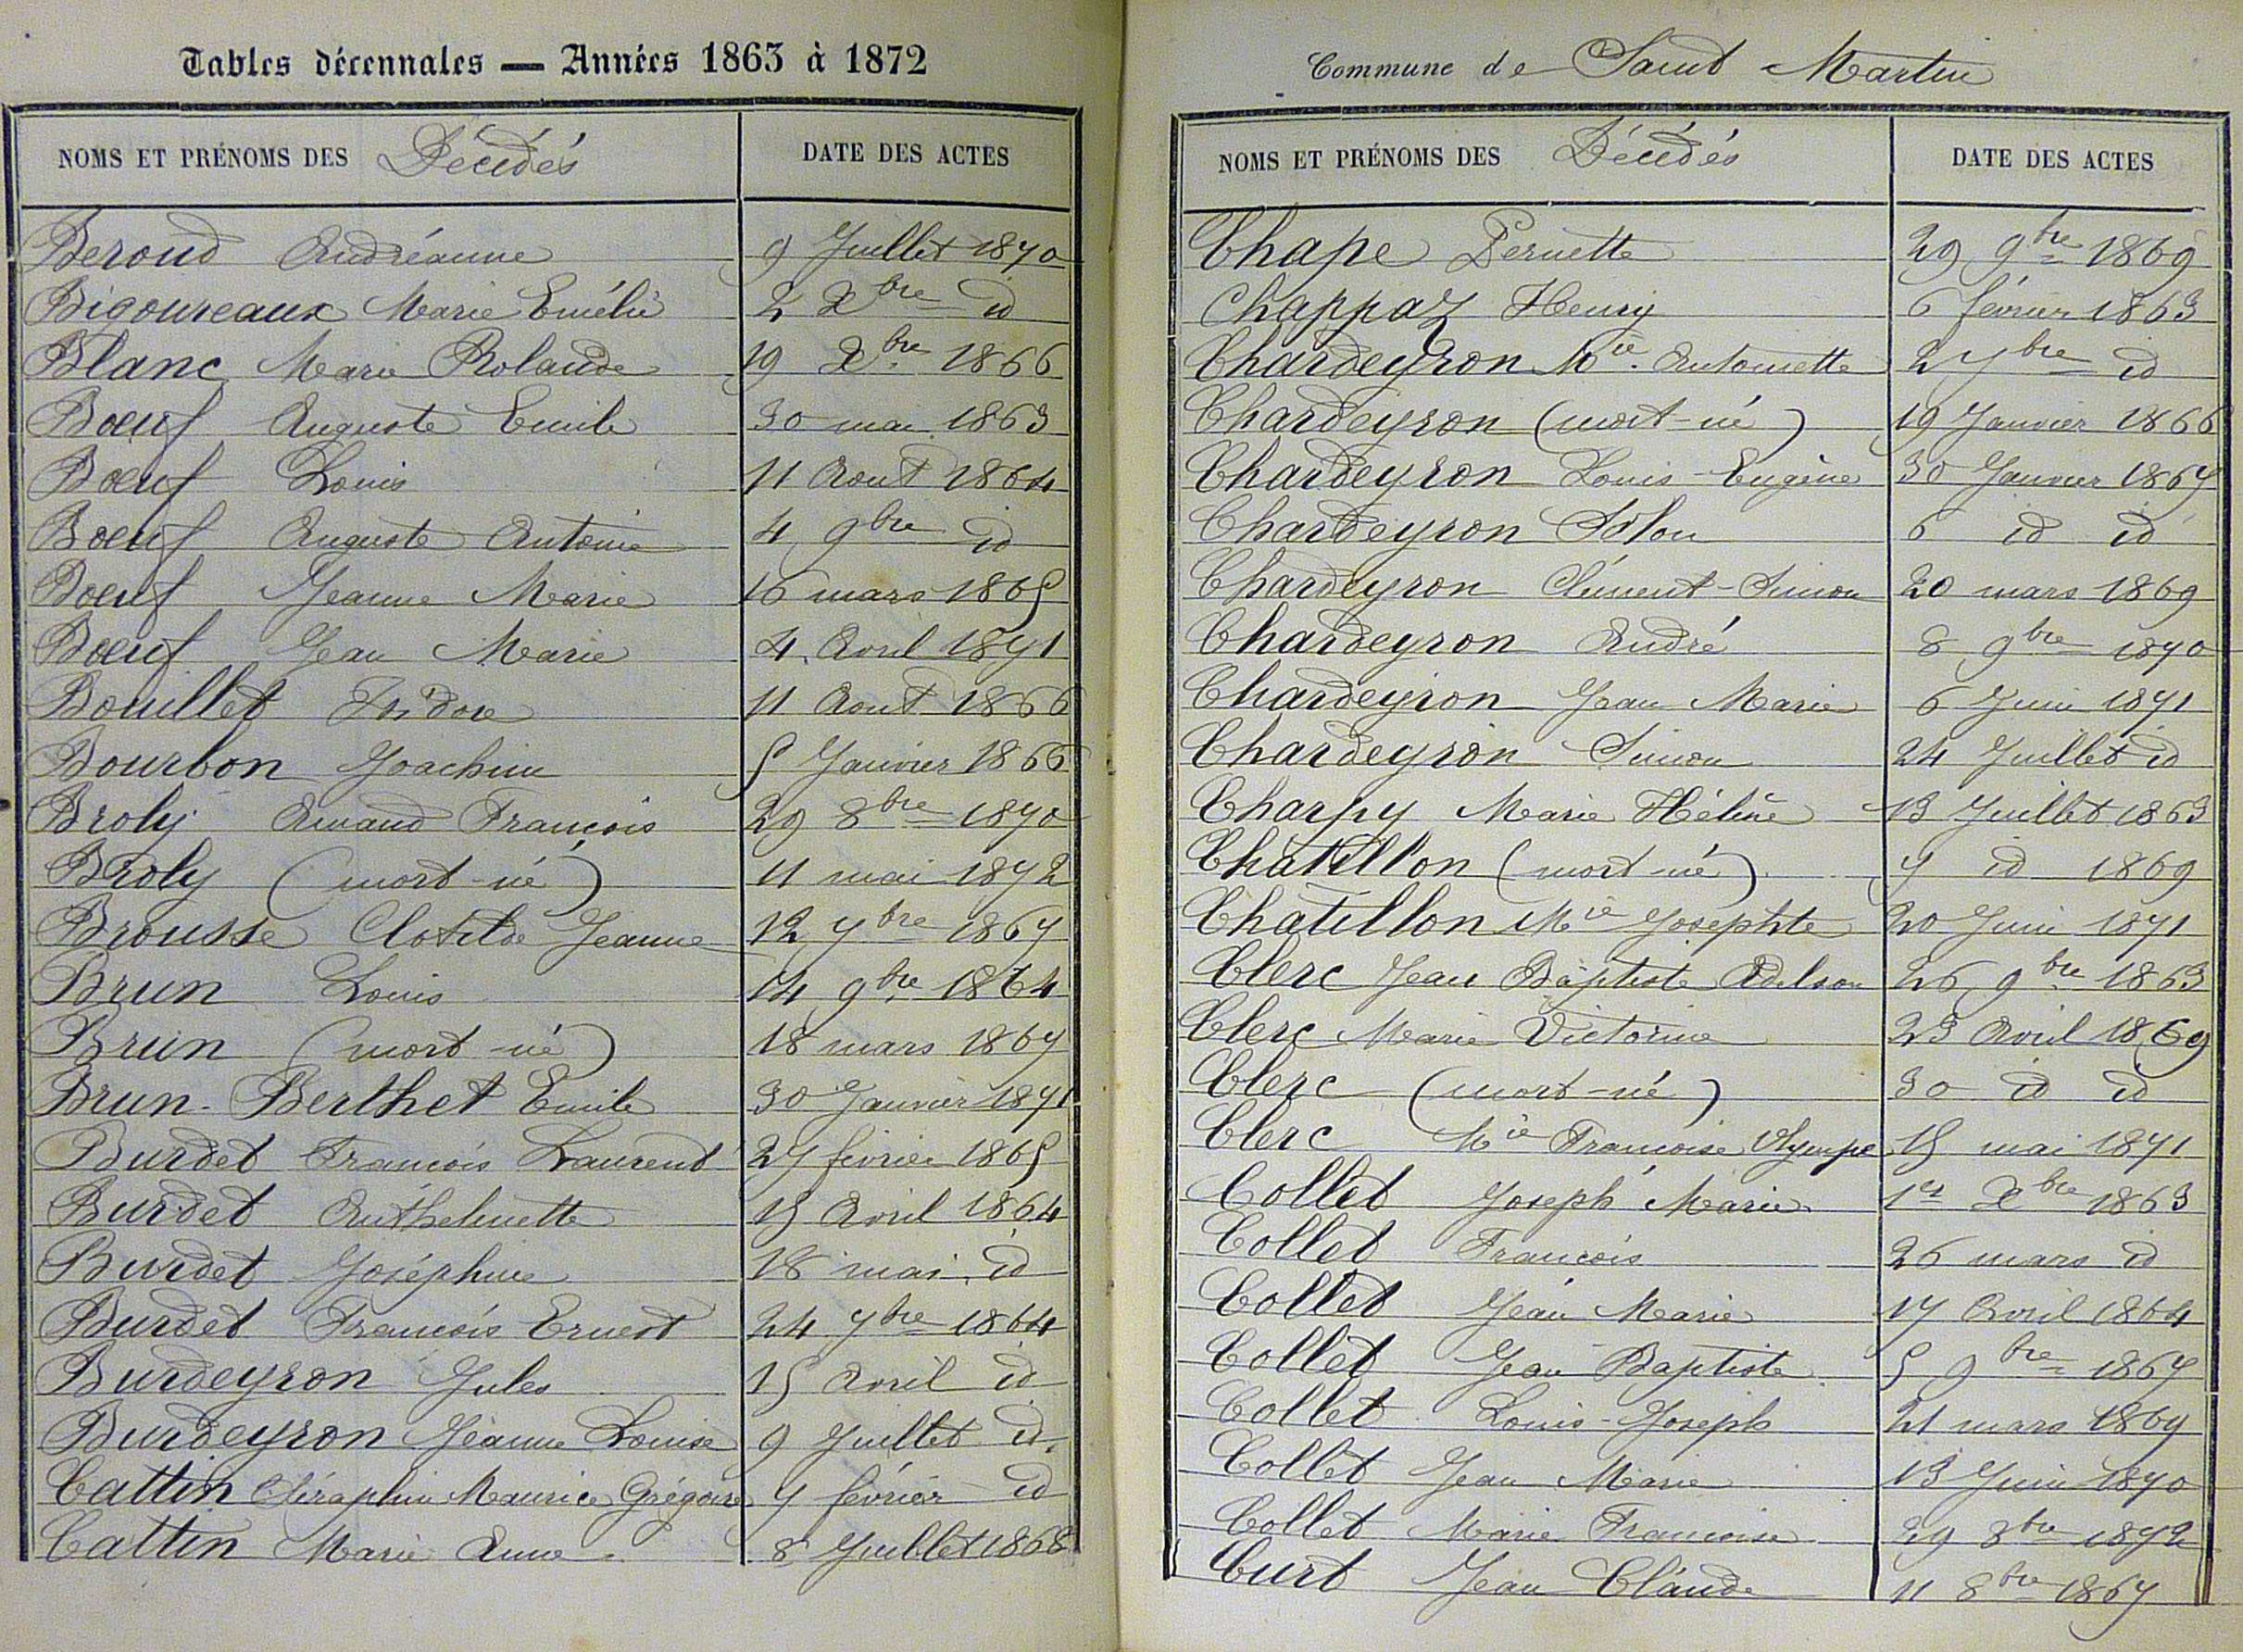 Tables décennales — Années 1863 à 1872
NOMS ET PRÉNOMS DES Décédés DATE DES ACTES
Beroud Andréanne 9 Juillet 1870
Bigoureaux Marie Emélie 2 Xbre id
Blanc Marie Rolande 19 Xbre 1866
Bœuf Auguste Emile 30 mai 1863
Bœuf Louis 11 Aout 1864
Bœuf Auguste Antoine 4 9bre id
Bœuf Jeanne Marie 16 mars 1865
Bœuf Jean Marie 4 Avril 1871
Bouillet Isidore 11 Aout 1866
Bourbon Joachim 5 Janvier 1866
Broly Amand François 29 8bre 1870
Broly (mort-né) 11 mai 1872
Brousse Clotilde Jeanne 12 7bre 1867
Brun Louis 14 9bre 1864
Brun (mort-né) 18 mars 1867
Brun-Berthet Emile 30 Janvier 1871
Burdet François Laurent 27 février 1865
Burdet Anthelmette 15 Avril 1864
Burdet Joséphine 18 mai id
Burdet François Ernest 24 7bre 1864
Burdeyron Jules 15 Avril id
Burdeyron Jeanne Louise 9 Juillet id.
Cattin Séraphin Maurice Grégoire 7 février id
Cattin Marie Anne 8 Juillet 1868
Commune de Saint Martin
NOMS ET PRÉNOMS DES Décédés DATE DES ACTES
Chape Pernette 29 9bre 1869
Chappaz Henry 6 février 1863
Chardeyron Mie Antoinette 2 7bre id
Chardeyron (mort-né) 19 Janvier 1866
Chardeyron Louis-Eugène 30 Janvier 1867
Chardeyron Solon 6 id id
Chardeyron Clément-Simon 20 mars 1869
Chardeyron André 8 9bre 1870
Chardeyron Jean Marie 6 Juin 1871
Chardeyron Simon 24 Juillet id
Charpy Marie Hélène 13 Juillet 1863
Chatillon (mort-né) 7 id 1869
Chatillon Mie Josephte 20 Juin 1871
Clerc Jean Baptiste Adelson 26 9bre 1863
Clerc Marie Victorine 23 Avril 1869
Clerc (mort-né) 30 id id
Clerc Mie Françoise Olympe 15 mai 1871
Collet Joseph Marie 1er Xbre 1863
Collet François 26 mars id
Collet Jean Marie 17 Avril 1864
Collet Jean Baptiste 5 9bre 1867
Collet Louis-Joseph 21 mars 1869
Collet Jean Marie 13 Juin 1870
Collet Marie Françoise 29 8bre 1872
Curt Jean Claude 11 8bre 1867